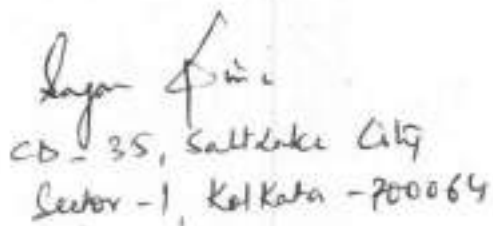 Sagar
CD - 35, Saltlake City
Sector - 1, Kolkata - 700064